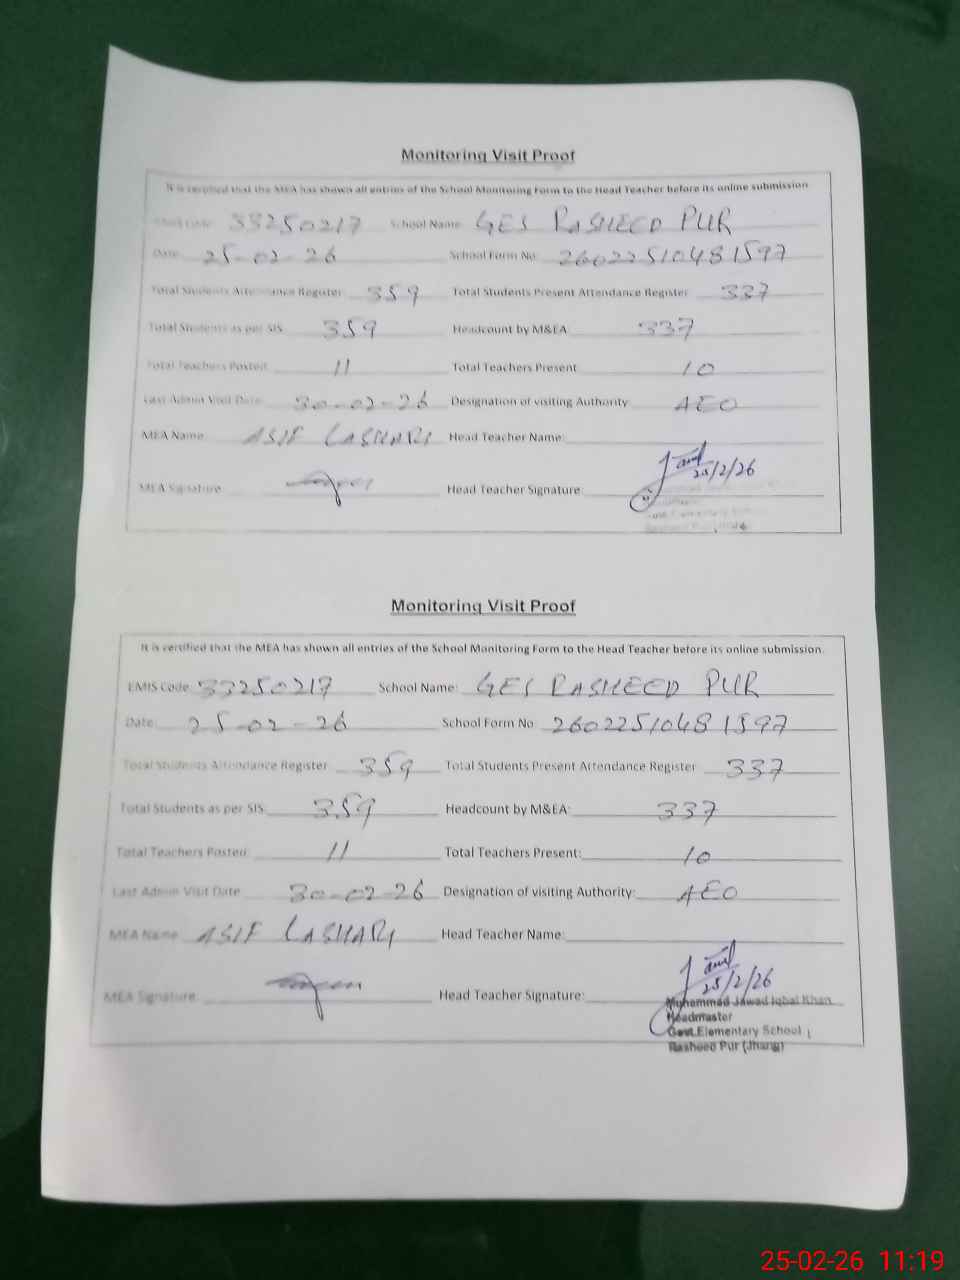 Monitoring Visit Proof
It is certified that the MEA has shown all entries of the School Monitoring Form to the Head Teacher before its online submission
EMIS Code: 33250217 School Name: GES RASHEED PUR
Date: 25-02-26 School Form No: 26022510481597
Total Students Attendance Register 359 Total Students Present Attendance Register 337
Total Students as per SIS 359 Headcount by M&EA: 337
Total Teachers Posted: 11 Total Teachers Present 10
Last Admin Visit Date: 30-02-26 Designation of visiting Authority AEO
MEA Name ASIF LASHARI Head Teacher Name:
25/2/26
MEA Signature: Head Teacher Signature:
Rasheed Pur
Monitoring Visit Proof
It is certified that the MEA has shown all entries of the School Monitoring Form to the Head Teacher before its online submission.
EMIS Code: 33250217 School Name: GES RASHEED PUR
Date: 25-02-26 School Form No: 26022510481597
Total Students Attendance Register 359 Total Students Present Attendance Register 337
Total Students as per SIS: 359 Headcount by M&EA: 337
Total Teachers Posted: 11 Total Teachers Present: 10
Last Admin Visit Date 30-02-26 Designation of visiting Authority: AEO
MEA Name ASIF LASHARI Head Teacher Name:
25/2/26
MEA Signature: Head Teacher Signature:
Muhammad Jawad Iqbal Khan
Headmaster
Govt. Elementary School
Rasheed Pur (Jhang)
25-02-26 11:19